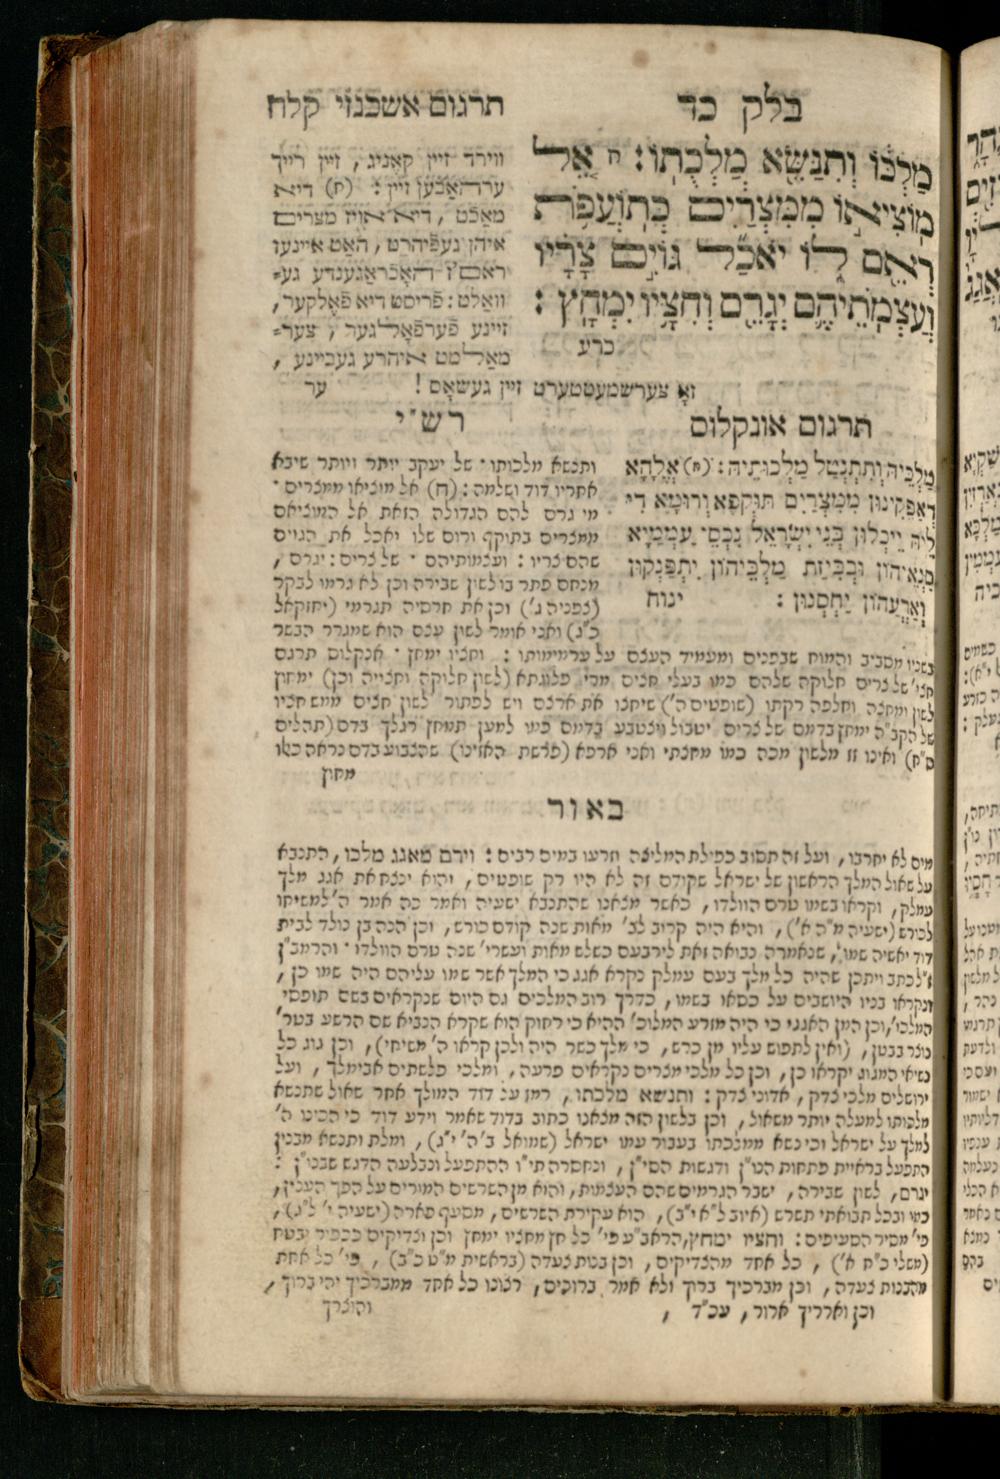 בלק כד
תרגום אשכנזי קלח
מַלְכּוֹ וְתִנַּשֵּׂא מַלְכֻתוֹ: ח אֵל
מוֹצִיאוֹ מִמִּצְרַיִם כְּתוֹעֲפֹת
רְאֵם לוֹ יֹאכַל גּוֹיִם צָרָיו
וְעַצְמֹתֵיהֶם יְגָרֵם וְחִצָּיו יִמְחָץ:
כרע
ווירד זיין קאָניג, זיין רייך
ערהאָבען זיין: (ח) דיא
מאַכט, דיא אויז מצרים
איהן געפֿיהרט, האָט איינען
ראם'ז
וואַלט: פֿריסט דיא פֿאָלקער,
זיינע פֿערפֿאָלגער, צער=
מאַלמט איהרע געביינע,
זאָ צערשמעטטערט זיין געשאָס! ער
תרגום אונקלוס
מַלְכֵּיהּ וְתִתְנַטַּל מַלְכוּתֵיהּ: (ח) אֱלָהָא
דְאַפֵּקִינוּן מִמִּצְרַיִם תּוּקְפָּא וְרוּמָא דִי
לֵיהּ יֵיכְלוּן בְּנֵי יִשְׂרָאֵל נִכְסֵי עַמְמַיָּא
סָנְאֵיהוֹן וּבְבִיזַת מַלְכֵּיהוֹן יִתְפַּנְּקוּן
וְאַרְעֲהוֹן יַחְסְנוּן: ינוח
רש"י
ותנשא מלכותו של יעקב יותר ויותר שיבא
אחריו דוד ושלמה: (ח) אל מוציאו ממצרים
מי גרם להם הגדולה הזאת אל המוציאם
ממצרים בתוקף ורום שלו יאכל את הגוים
שהם צריו: ועצמותיהם של צרים: יגרם,
מנחם פתר בו לשון שבירה וכן לא גרמו לבקר
(צפניה ג') וכן את חרסיה תגרמי (יחזקאל
כ"ג) ואני אומר לשון עצם הוא שמגרר הבשר
בשניו מסביב והמוח שבפנים ומעמיד העצם על ערמימותו: וחציו ימחץ אנקלוס תרגם
חציו של צרים חלוקה שלהם כמו בעלי חצים מרי פלוגתא (לשון חלוקה וחצייה וכן) ימחץ
לשון ומחצה וחלפה רקתו (שופטים ה') שיחצו את ארצם ויש לפתור לשון חצים ממש חציו
של הקב"ה ימחץ בדמם של צרים יטבול ויצטבע בדמם כמו למען תמחץ רגלך בדם (תהלים
ס"ח) ואינו זז מלשון מכה כמו מחצתי ואני ארפא (פרשת האזינו) שהצבוע בדם נראה כאלו
מחוץ
באור
מים לא יחרבו, ועל זה תסוב כפילת המליצה וזרעו במים רבים: וירם מאגג מלכו, התנבא
על שאול המלך הראשון של ישראל שקודם זה לא היו רק שופטים, והוא ינצח את אגג מלך
עמלק, וקראו בשמו טרם הוולדו, כאשר מצאנו שהתנבא ישעיה ואמר כה אמר ה' למשיחו
לכורש (ישעיה מ"ה א'), והיא היה קרוב לב' מאות שנה קודם כורש, וכן הנה בן נולד לבית
דוד יאשיה שמו, שנאמרה נבואה זאת לירבעם כשלש מאות ועשרי' שנה טרם הוולדו והרמב"ן
ז"ל כתב ויתכן שהיה כל מלך בעם עמלק נקרא אגג כי המלך אשר שמו עליהם היה שמו כן,
ונקראו בניו היושבים על כסאו בשמו, כדרך רוב המלכים גם היום שנקראים בשם תופסי
המלכו', וכן המן האגגי כי היה מזרע המלוכ' ההיא כי רחוק הוא שקרא הנביא שם הרשע בטר'
נוצר בבטן, (ואין לתפוש עליו מן כרש, כי מלך כשר היה ולכן קראו ה' משיחי), וכן גוג כל
נשיאי המגוג יקראו כן, וכן כל מלכי מצרים נקראים פרעה, ומלכי פלשתים אבימלך, ועל
ירושלים מלכי צדק, אדוני צדק: ותנשא מלכתו, רמז על דוד המולך אחר שאול שתנשא
מלכותו למעלה יותר משאול, וכן בלשון הזה מצאנו כתוב בדוד שאמר וידע דוד כי הכינו ה'
למלך על ישראל וכי נשא ממלכתו בעבור עמו ישראל (שמואל ב' ה' י"ג), ומלת ותנשא מבנין
התפעל בראיית פתחות הנו"ן ודגשות הסי"ן, ונחסרה תי"ו ההתפעל ונבלעה הדגש שבנו"ן:
יגרם, לשון שבירה, ישבר הגרמים שהם העצמות, והוא מן השרשים המורים על הפך הענין,
כמו ובכל תבואתי תשרש (איוב ל"א י"ב), הוא עקירת השרשים, מסעף פארה (ישעיה י' ל"ג),
פי' מסיר הסעיפים: וחציו ימחץ, הראב"ע פי' כל חץ מחציו ימחץ וכן וצדיקים ככפיר יבטח
(משלי כ"ח א'), כל אחד מהצדיקים, וכן בנות צעדה (בראשית מ"ט כ"ב), פי' כל אחת
מהבנות צעדה, וכן מברכיך ברוך ולא אמר ברוכים, רצונו כל אחד ממברכיך יהי ברוך,
וכן ואורריך ארור, עכ"ד, והוצרך